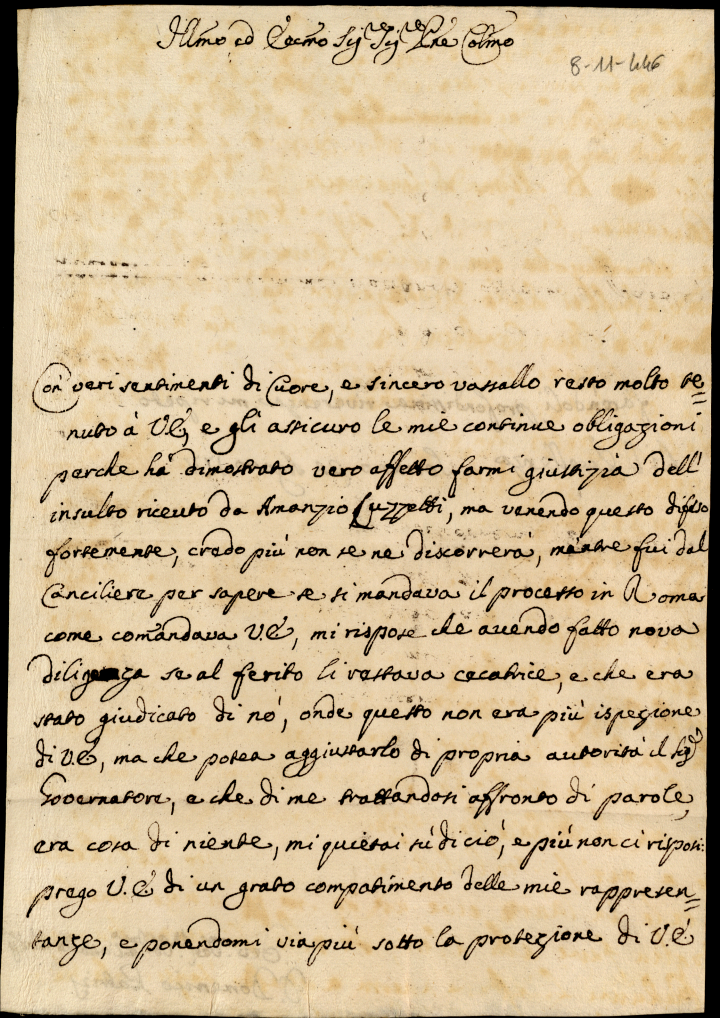 Illmo ed Eccmo Sigre Sigre Pne Colmo
8-11-446
Con veri sentimenti di Cuore, e sincero vassallo resto molto te=
nuto à V.E, e gli assicuro le mie continue obligazioni
perche hà dimostrato vero affetto farmi giustizia dell'
insulto riceuto da Amanzio Luzzetti, ma venendo questo difeso
fortemente, credo più non se ne discorrerà, mentre fui dal
Canciliere per sapere se si mandava il processo in Roma
come comandava V.E, mi rispose che avendo fatto nova
diligenza se al ferito li restava cecatrice, e che era
stato giudicato di nò, onde questo non era più ispezione
di V.E, ma che potea aggiustarlo di propria autorità il Sigr
Governatore, e che di me trattandosi affronto di parole,
era cosa di niente, mi quietai sù di ciò, e più non ci risposi:
prego V.E di un grato compatimento delle mie rappresen=
tanze, e ponendomi via più sotto la protezione di V.E